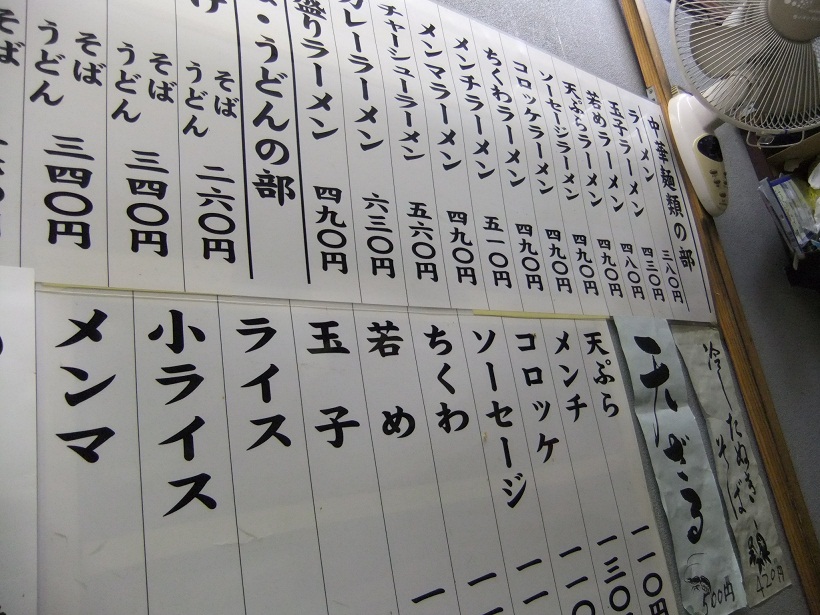 中華麺類の部
ラーメン 三八〇円
玉子ラーメン 四三〇円
若めラーメン 四八〇円
天ぷらラーメン 四九〇円
ソーセージラーメン 四九〇円
コロッケラーメン 四九〇円
ちくわラーメン 四九〇円
メンチラーメン 五一〇円
メンマラーメン 四九〇円
チャーシューラーメン 五六〇円
カレーラーメン 六三〇円
盛りラーメン 四九〇円
・うどんの部
け そば うどん 二六〇円
そば うどん 三四〇円
そば うどん 三四〇円
そば
冷したぬきそば 420円
天ざる 500円
天ぷら 一一〇円
メンチ 一三〇
コロッケ 一一〇
ソーセージ 一一
ちくわ 一一
若め 一
玉子
ライス
小ライス
メンマ